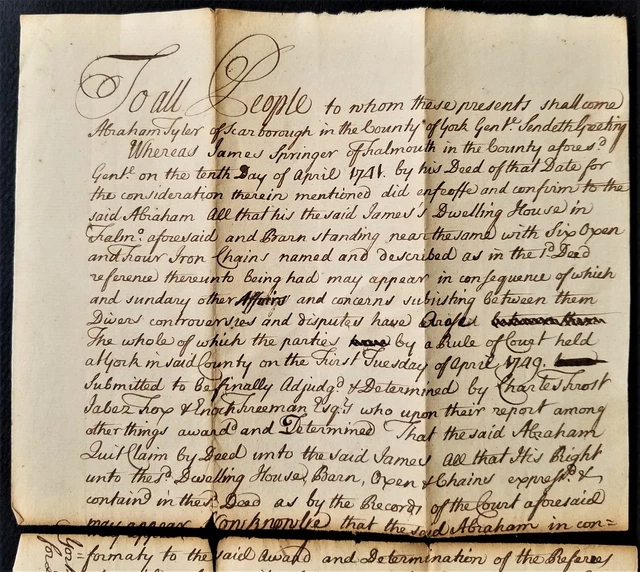 To all People to whom these presents shall come
Abraham Tyler of Scarborough in the County of York Gent. Sendeth Greeting
Whereas James Springer of Falmouth in the County afores.d
Gent. on the tenth Day of April 1741. by his Deed of that Date for
the consideration therein mentioned did enfeoffe and confirm to the
said Abraham All that his the said James's Dwelling House in
Falm.o aforesaid and Barn standing near the same with Six Oxen
and Four Iron Chains named and described as in the s.d Deed
reference thereunto being had may appear in consequence of which
and sundary other Affairs and concerns subsisting between them
Divers controversies and disputes have arose between them
The whole of which the parties have by a Rule of Court held
at York in said County on the First Tuesday of April 1749.
Submitted to be finally Adjudg.d & Determined by Charles Frost
Jabez Fox & Enoch Freeman Esq.rs who upon their report among
other things award.d and Determined That the said Abraham
Quit Claim by Deed unto the said James All that His Right
unto the s.d Dwelling House, Barn, Oxen & Chains express.d &
contain.d in the s.d Deed as by the Records of the Court aforesaid
may appear Now know Ye that the said Abraham in con=
formaty to the said Award and Determination of the Referees
York